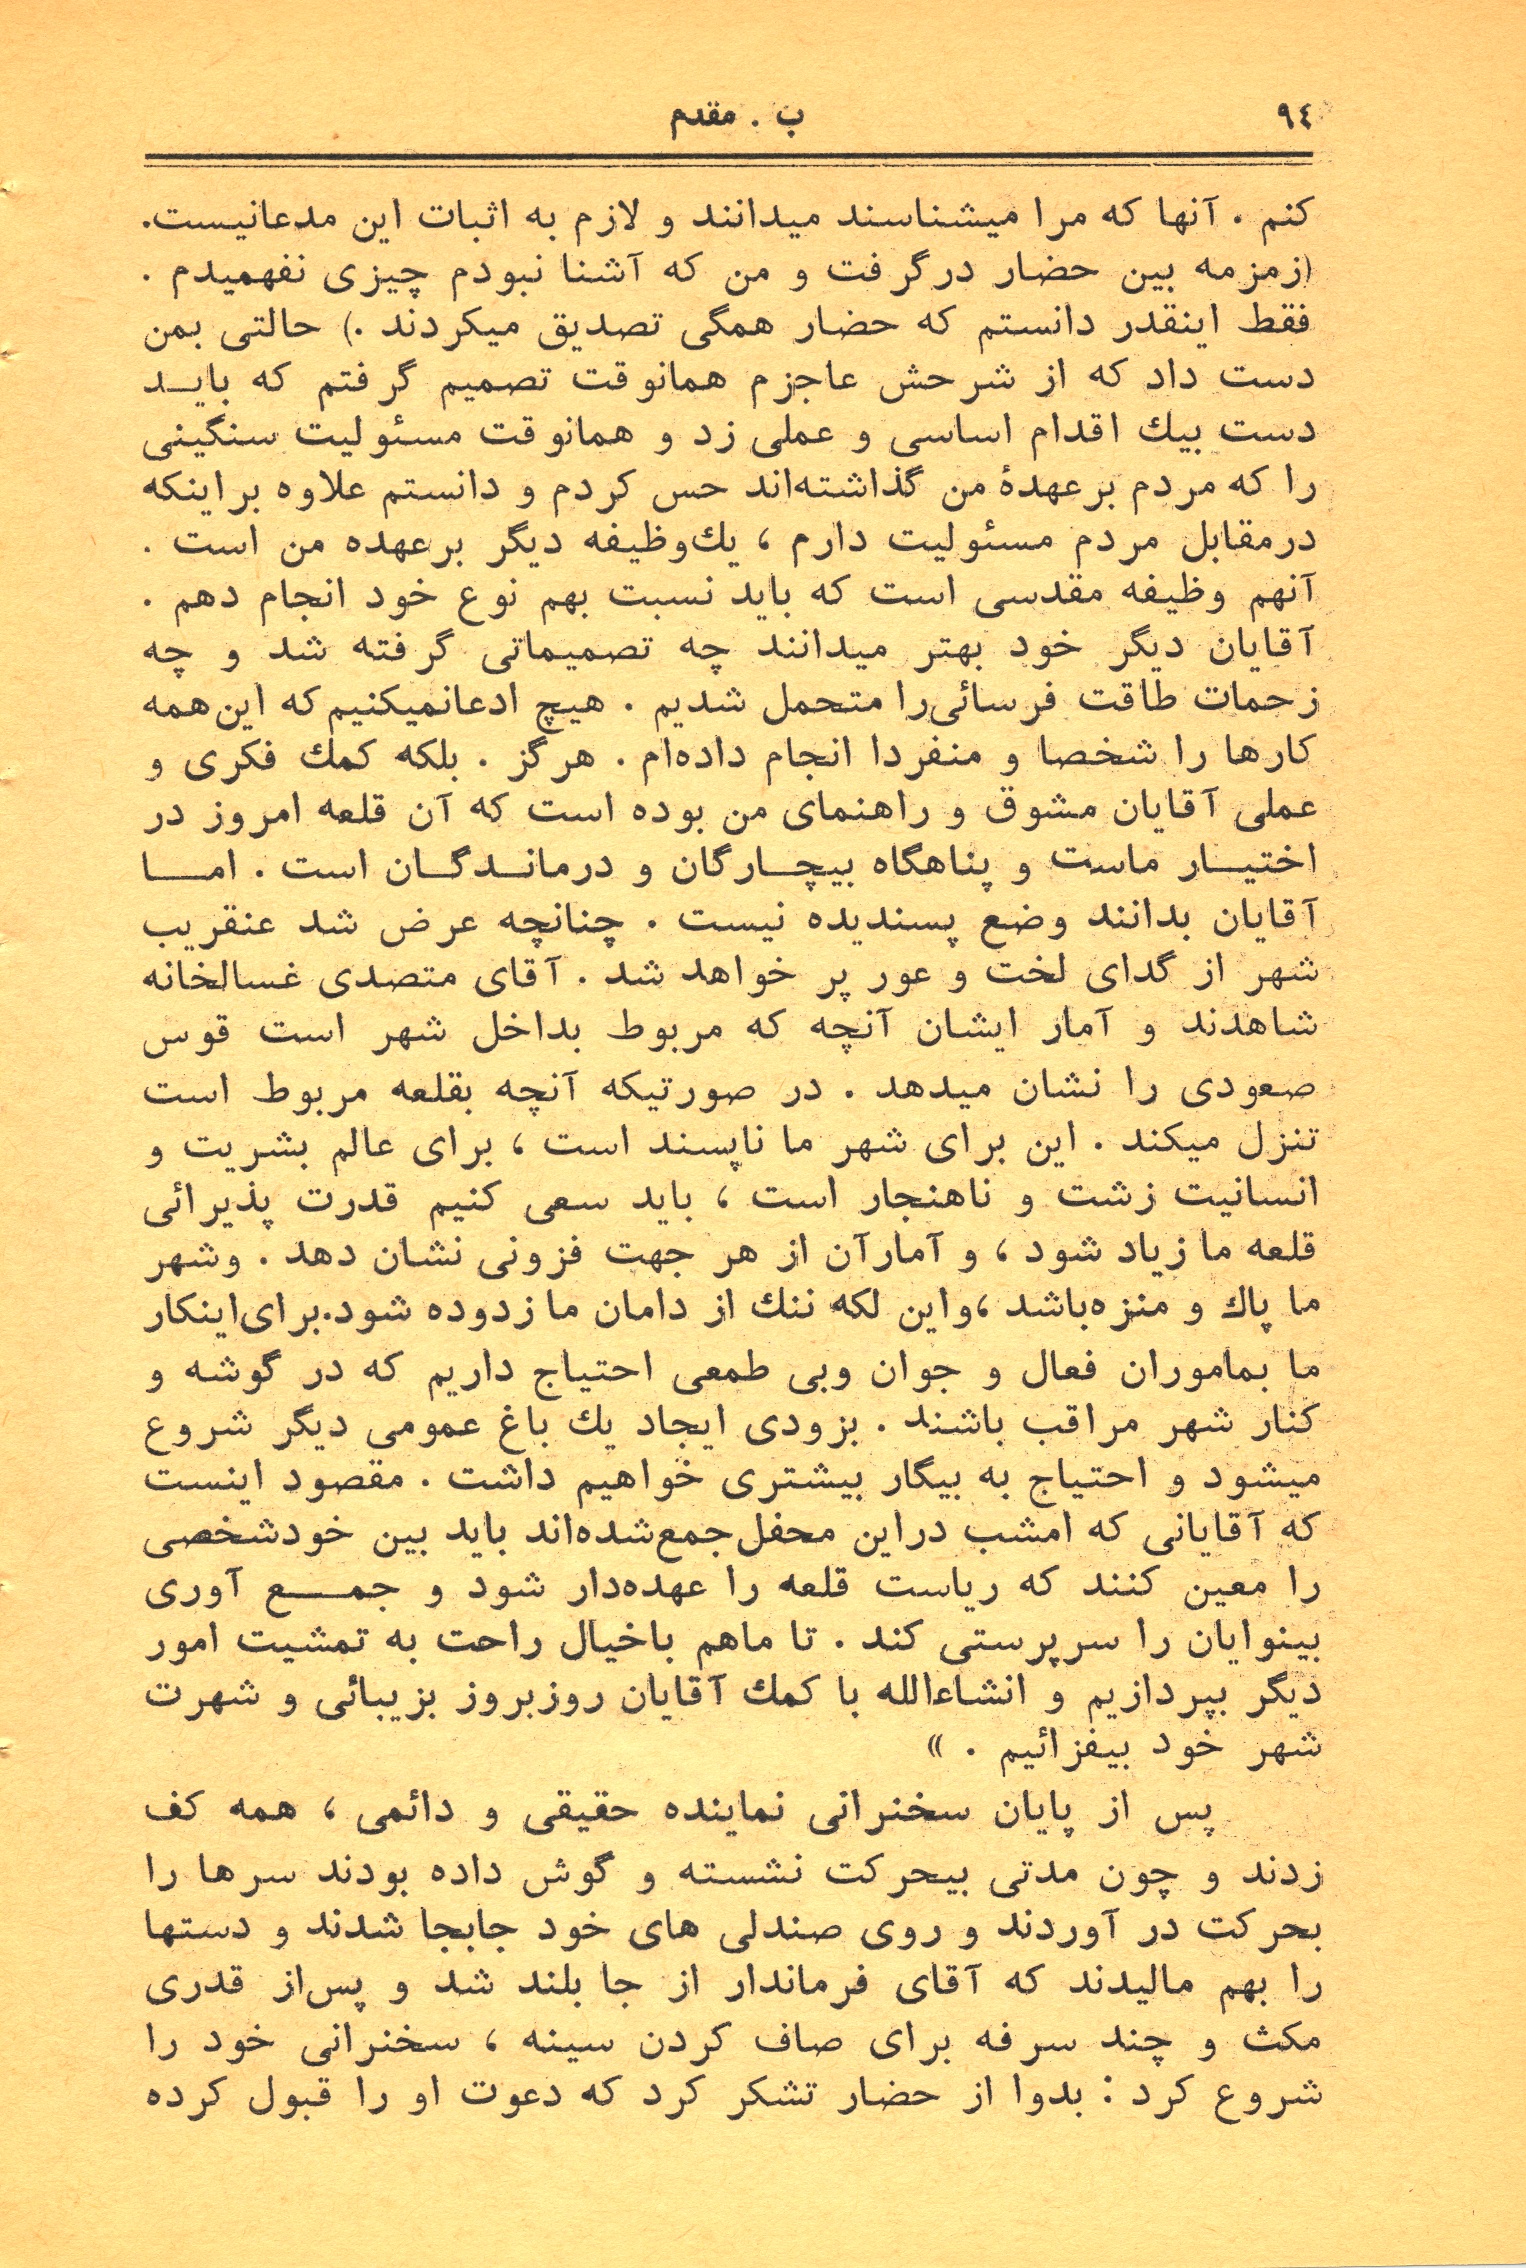 ۹٤
ب . مقدم
کنم . آنها که مرا میشناسند میدانند و لازم به اثبات این مدعانیست.
(زمزمه بین حضار درگرفت و من که آشنا نبودم چیزی نفهمیدم .
فقط اینقدر دانستم که حضار همگی تصدیق میکردند .) حالتی بمن
دست داد که از شرحش عاجزم همانوقت تصمیم گرفتم که بایـد
دست بیك اقدام اساسی و عملی زد و همانوقت مسئولیت سنگینی
را که مردم برعهدهٔ من گذاشته‌اند حس کردم و دانستم علاوه براینکه
درمقابل مردم مسئولیت دارم ، یك‌وظیفه دیگر برعهده من است .
آنهم وظیفه مقدسی است که باید نسبت بهم نوع خود انجام دهم .
آقایان دیگر خود بهتر میدانند چه تصمیماتی گرفته شد و چه
زحمات طاقت فرسائی‌را متحمل شدیم . هیچ ادعانمیکنیم که این همه
کارها را شخصا و منفردا انجام داده‌ام . هرگز . بلکه کمك فکری و
عملی آقایان مشوق و راهنمای من بوده است که آن قلعه امروز در
اختیـار ماست و پناهگاه بیچـارگان و درمانـدگـان است . امـا
آقایان بدانند وضع پسندیده نیست . چنانچه عرض شد عنقریب
شهر از گدای لخت و عور پر خواهد شد . آقای متصدی غسالخانه
شاهدند و آمار ایشان آنچه که مربوط بداخل شهر است قوس
صعودی را نشان میدهد . در صورتیکه آنچه بقلعه مربوط است
تنزل میکند . این برای شهر ما ناپسند است ، برای عالم بشریت و
انسانیت زشت و ناهنجار است ، باید سعی کنیم قدرت پذیرائی
قلعه ما زیاد شود ، و آمارآن از هر جهت فزونی نشان دهد . وشهر
ما پاك و منزه‌باشد ،واین لکه ننك از دامان ما زدوده شود.برای‌اینکار
ما بماموران فعال و جوان وبی طمعی احتیاج داریم که در گوشه و
کنار شهر مراقب باشند . بزودی ایجاد یك باغ عمومی دیگر شروع
میشود و احتیاج به بیگار بیشتری خواهیم داشت . مقصود اینست
که آقایانی که امشب دراین محفل جمع‌شده‌اند باید بین خودشخصی
را معین کنند که ریاست قلعه را عهده‌دار شود و جمـع آوری
بینوایان را سرپرستی کند . تا ماهم باخیال راحت به تمشیت امور
دیگر بپردازیم و انشاءالله با کمك آقایان روزبروز بزیبائی و شهرت
شهر خود بیفزائیم . »
پس از پایان سخنرانی نماینده حقیقی و دائمی ، همه کف
زدند و چون مدتی بیحرکت نشسته و گوش داده بودند سرها را
بحرکت در آوردند و روی صندلی های خود جابجا شدند و دستها
را بهم مالیدند که آقای فرماندار از جا بلند شد و پس‌از قدری
مکث و چند سرفه برای صاف کردن سینه ، سخنرانی خود را
شروع کرد : بدوا از حضار تشکر کرد که دعوت او را قبول کرده